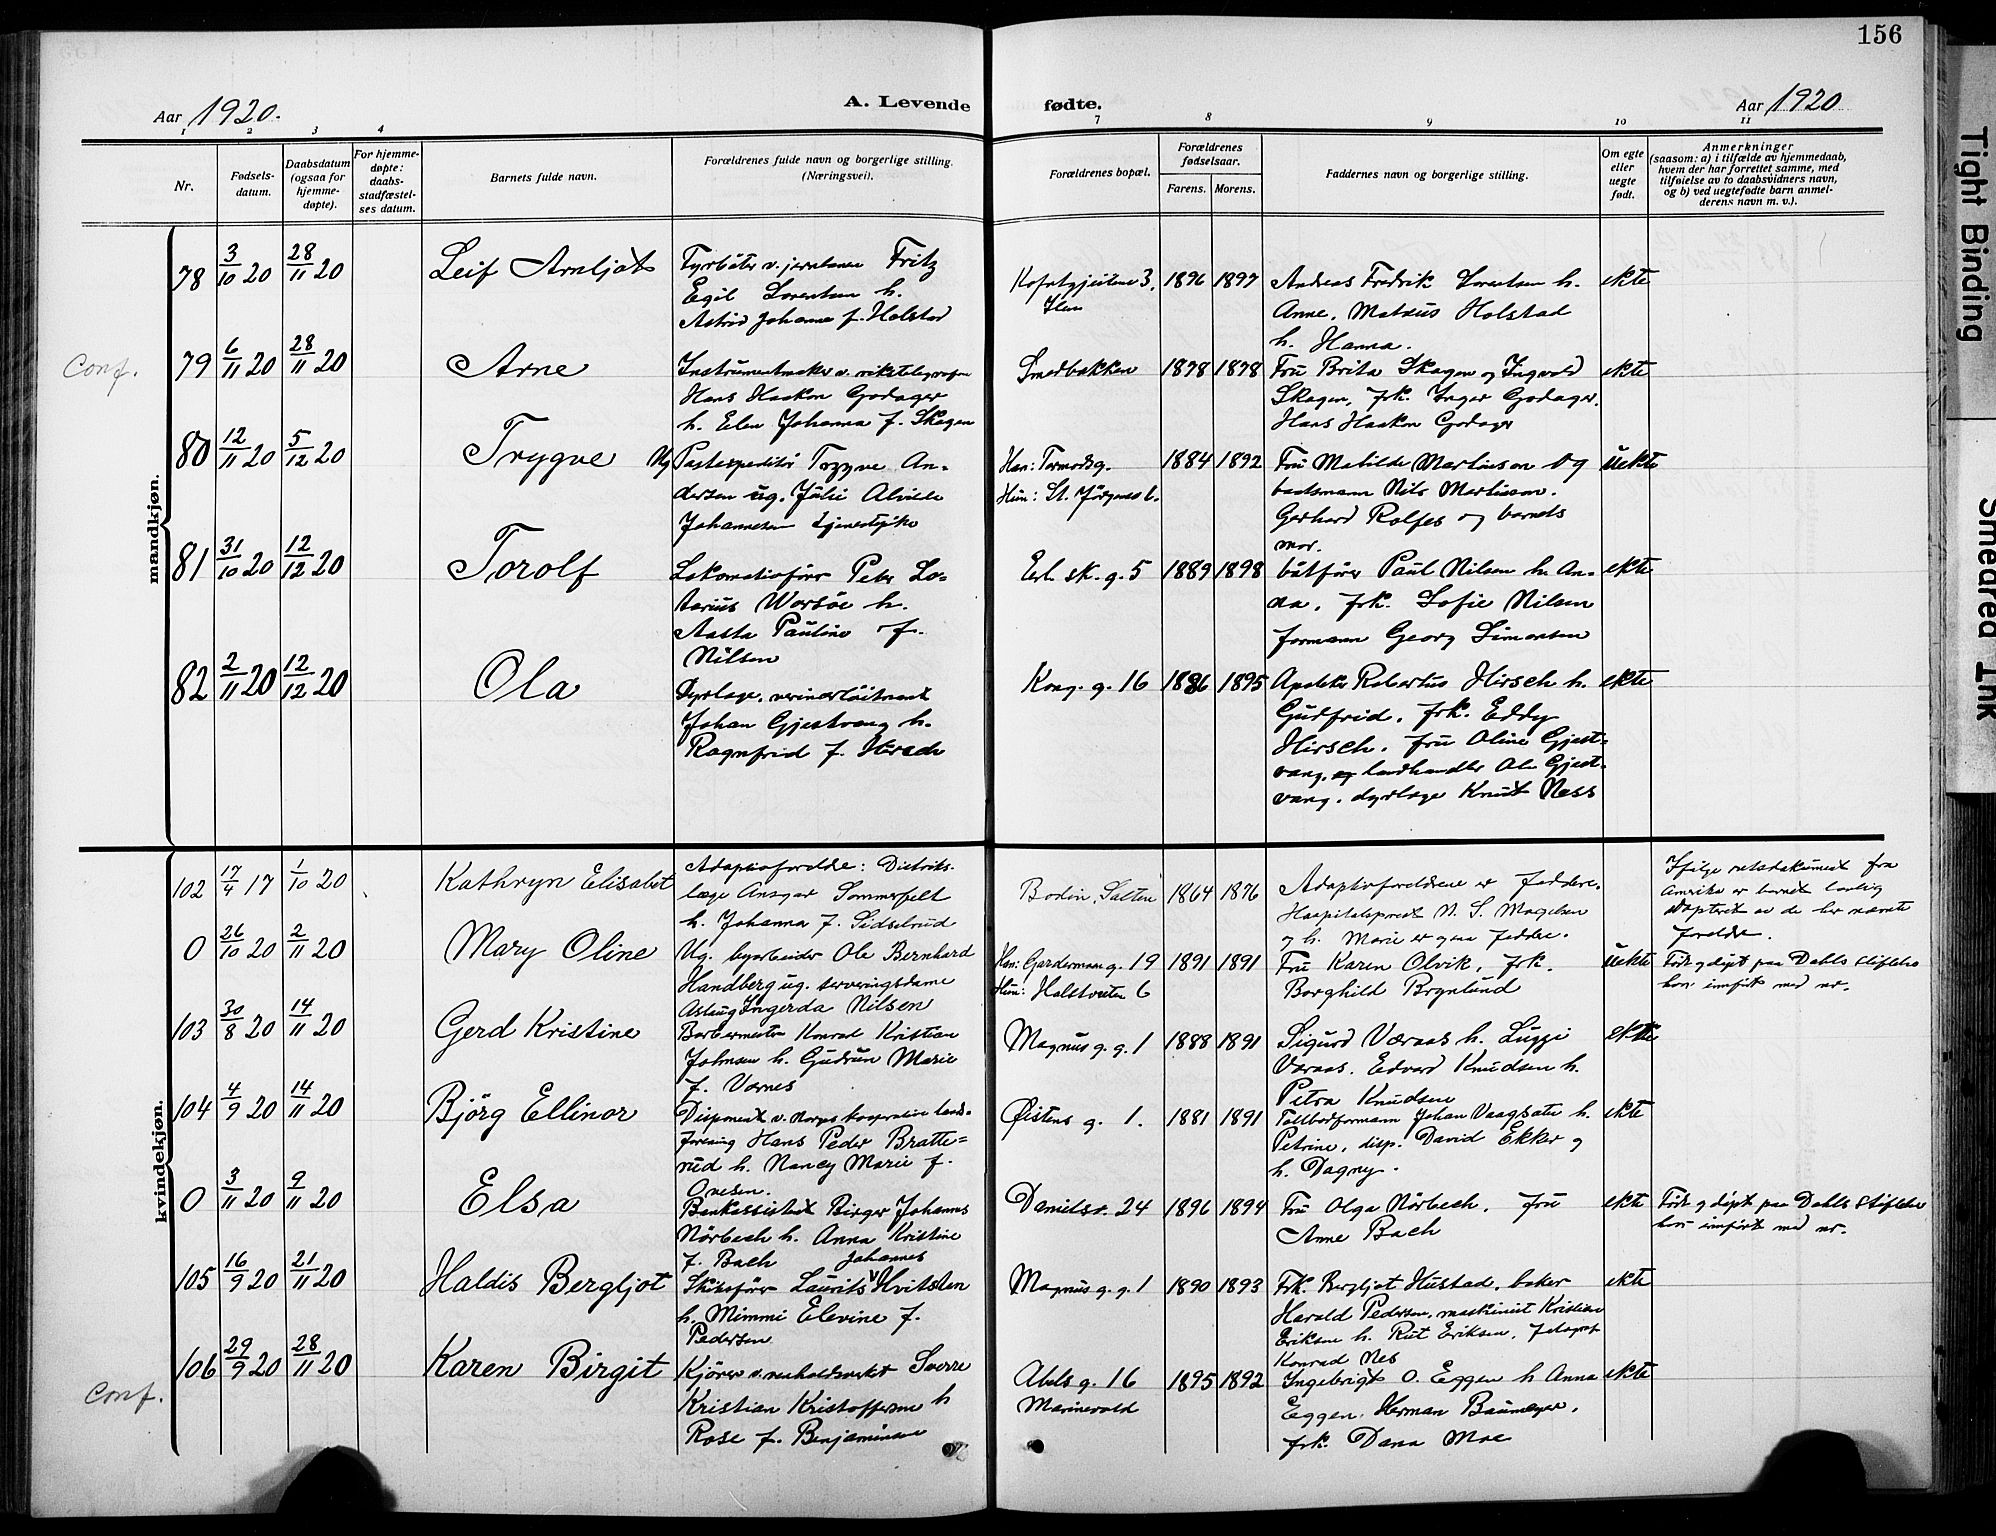 156
Aar 1920.
A. Levende fødte.
Aar 1920
1 2 3 4 7 8 9 10 11
Nr.
Fødsels-
datum.
Daabsdatum
(ogsaa for
hjemme-
døpte).
For hjemme-
døpte:
daabs-
stadfæstel-
ses datum.
Barnets fulde navn.
Forældrenes fulde navn og borgerlige stilling.
(Næringsvei).
Forældrenes bopæl.
Forældrenes
fødselsaar.
Farens. Morens.
Faddernes navn og borgerlige stilling.
Om egte
eller
uegte
født.
Anmerkninger
(saasom: a) i tilfælde av hjemmedaab,
hvem der har forrettet samme, med
tilføielse av to daabsvidners navn,
og b) ved uegtefødte barn anmel-
derens navn m. v.).
mandkjøn.
78 3/10 20 28/11 20 Leif Arnljot
Fyrbøter v. jernbanen Fritz
Egil Lorentsen h.
Astrid Johanne f. Holstad
3,
Ilen
1896 1897
Andreas Fredrik Lorentsen h.
Anne, Matæus Holstad
h. Hanna.
ekte
Conf. 79 6/11 20 28/11 20 Arne
Instrumentmaker v. rikstelegrafen
Hans Haakon Godager
h. Elen Johanna f. Skagen
Smedbakken
1898 1898
Fru Brita Skagen og Ingvald
Skagen, frk. Inger Godager.
Hans Haakon Godager
ekte
80 12/11 20 5/12 20 Trygve
Ug Postekspeditør Trygve An-
dersen ug. Julie Alvilde
Johannesen tjenestepike
Han: Tormodsg.
Hun: St. Jørgensv. 6.
1884 1892
Fru Matilde Martinsen og
baatsmann Nils Martinsen.
Gerhard Rolfes og barnets
mor.
uekte
81 31/10 20 12/12 20 Torolf
Lokomotivfører Peter Lo-
tarius Worsöe h.
Aasta Pauline f.
Nilsen
Erl. sk. g. 5
1889 1898
båtfører Paul Nilsen h. An-
na, frk. Sofie Nilsen
formann Georg Simonsen
ekte
82 2/11 20 12/12 20 Ola
Dyrlæge, verinærløitnant
Johan Gjestvang h.
Ragnfrid f. Hirsch
Kong. g. 16
1886 1895
Apoteker Robertus Hirsch h.
Gudfrid, frk. Eddy
Hirsch, fru Oline Gjest-
vang, og landhandler Ole Gjest-
vang. dyrlæge Knut Næss
ekte
kvindekjøn.
102 17/4 17 1/10 20 Kathryn Elisabet
Adoptivforeldre: Distrikts-
læge Ansgar Sommerfelt
h. Johanna f. Sidselrud
Bodin, Salten
1864 1876
Adoptivforeldrene er faddere.
Hospitalsprest N. S. Magelsen
og h. Marie er ogsaa faddere.
Ifølge retsdokument fra
Amerika er barnet lovlig
adopteret av de her nævnte
foreldre.
0 26/10 20 2/11 20 Mary Oline
Ug. byarbeider Ole Bernhard
Handberg ug. serveringsdame
Aslaug Ingerda Nilsen
Han: Gardermoeng. 19
Hun: Halstveiten 6
1891 1891
Fru Karen Olvik, frk.
Borghild Brynlund
uekte
Født og døpt paa Dahls stiftelse
hvor innført med nr.
103 30/8 20 14/11 20 Gerd Kristine
Barbermester Konrad Kristian
Johnsen h. Gudrun Marie
f. Værnes
Magnus g. g. 1
1888 1891
Sigurd Væraas h. Luggi
Væraas. Edvard Knudsen h.
Petra Knudsen
ekte
104 4/9 20 14/11 20 Bjørg Ellinor
Disponent v. Norges kooperative lands-
forening Hans Peder Bratte-
rud h. Nancy Marie f.
Onesen.
Øistens g. 1.
1881 1891
Tollbodformann Johan Vaagsæter h.
Petrine, disp. David Ekker og
h. Dagny.
ekte
0 3/11 20 9/11 20 Elsa
Bankassistent Birger Johannes
Nørbech h. Anna Kristine
f. Bach
Danielsv. 24
1896 1894
Fru Olga Nørbech. fru
Anne Bach
ekte
Født og døpt paa Dahls stiftelse
hvor innført med nr.
105 16/9 20 21/11 20 Haldis Bergljot
Skibsfører Laurits Johannes Hvitsten
h. Mimmi Elevine f.
Pedersen
Magnus g. g. 1
1890 1893
Frk. Bergljot Hustad, baker
Harald Pedersen, maskinist Kristian
Eriksen h. Rut Eriksen,
Konrad Nes
ekte
Conf. 106 29/9 20 28/11 20 Karen Birgit
Kjører v. renholdsverket Sverre
Kristian Kristoffersen h
Rose f. Benjaminsen
Abels g. 16
Marinevold
1895 1892
Ingebrigt O. Eggen h Anna
Eggen. Herman Baumeyer,
frk. Dana Moe
ekte
Tight Binding
Smeared Ink